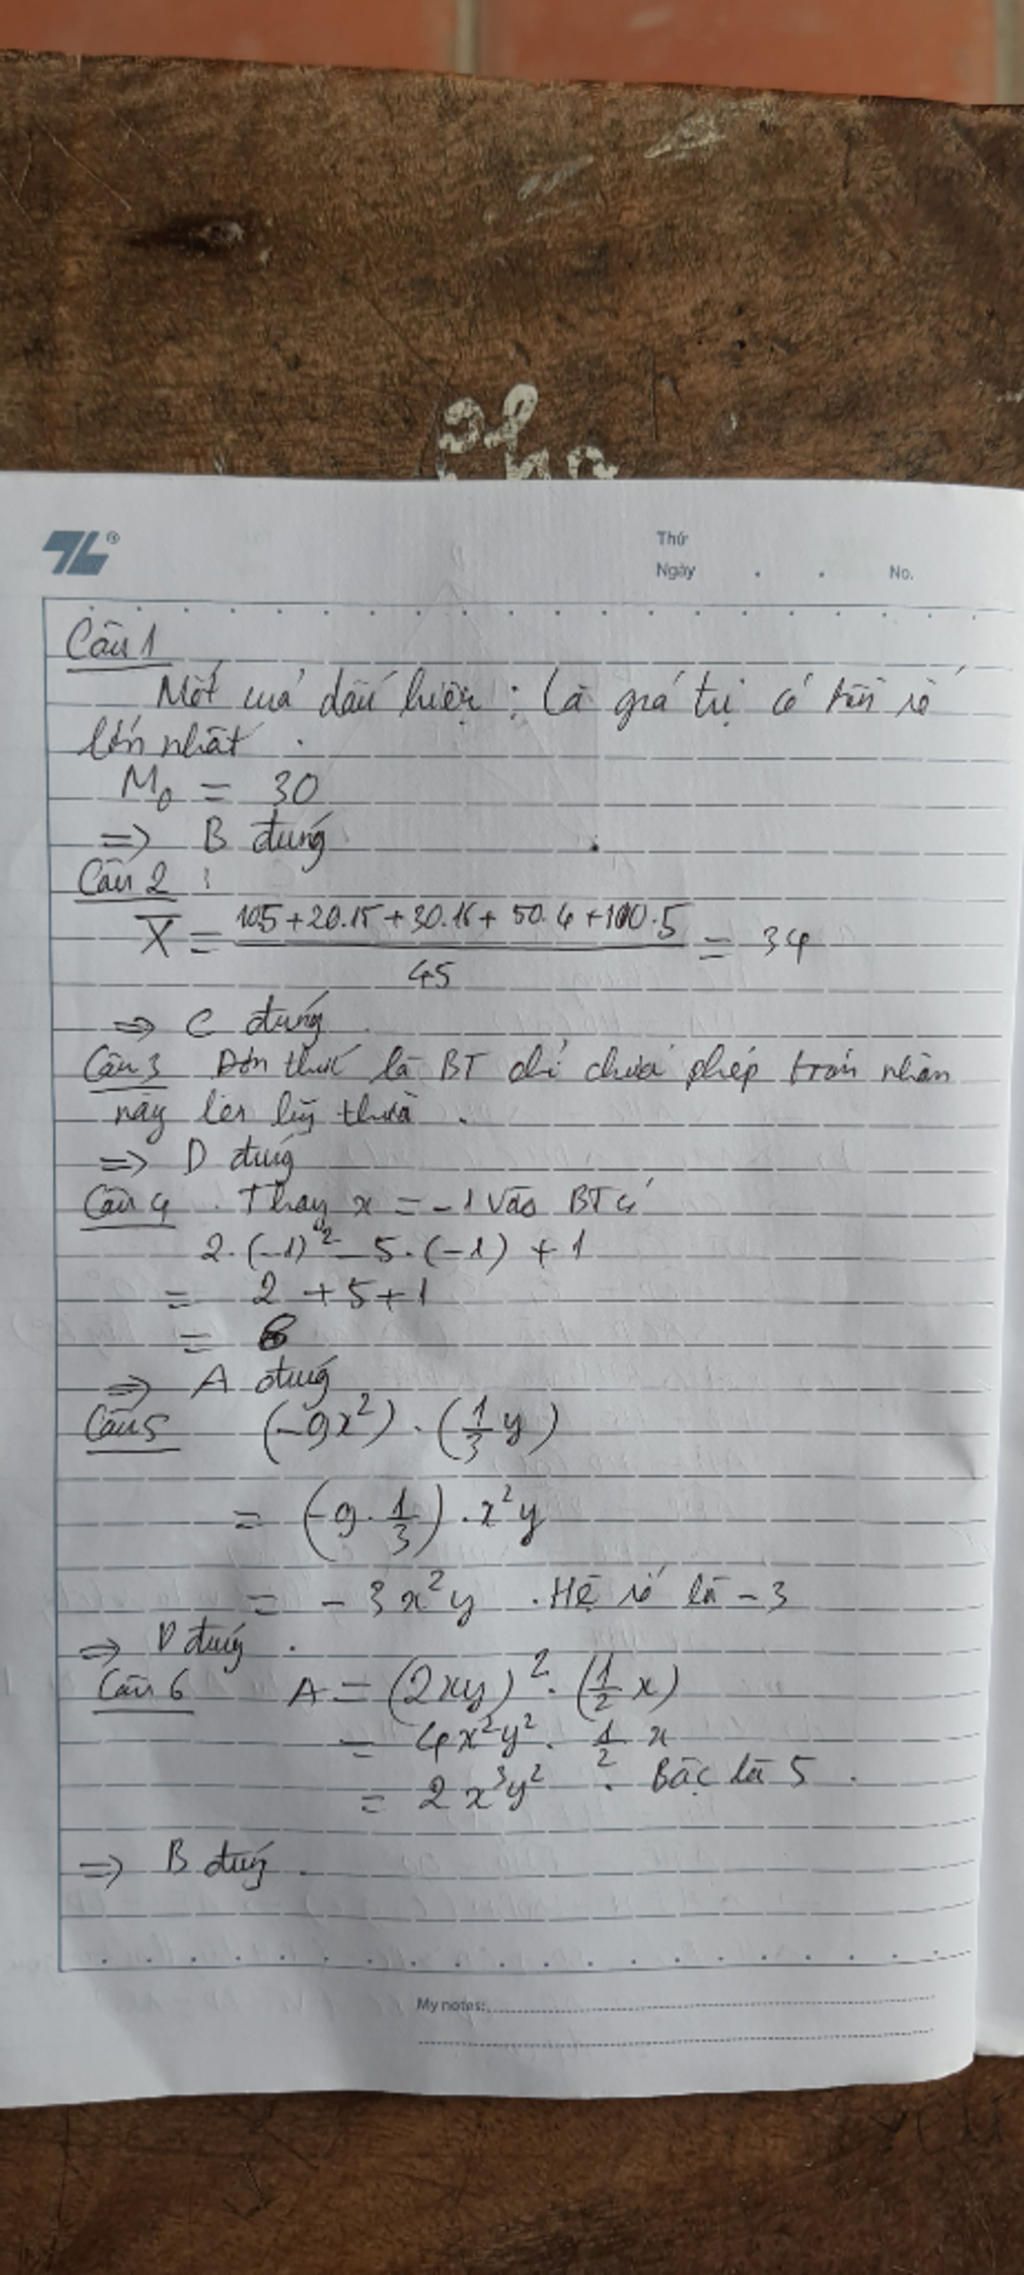 Pho
TL
Thứ
Ngày . . No.
Câu 1
Mốt của dấu hiệu : Là giá trị có tần số
lớn nhất .
M₀ = 30
=> B đúng
Câu 2 :
X̄ = (10.5 + 20.15 + 30.16 + 50.4 + 100.5) / 45 = 34
=> C đúng
Câu 3 Đơn thức là BT chỉ chứa phép toán nhân
lũy thừa .
=> D đúng
Câu 4 . Thay x = -1 vào BT có
2.(-1)² - 5.(-1) + 1
= 2 + 5 + 1
=
=> A đúng
Câu 5 (-9x²) . (1/3 y)
= (-9 . 1/3) . x²y
= -3x²y . Hệ số là -3
=> D đúng .
Câu 6 A = (2xy)² . (1/2 x)
= 4x²y² . 1/2 x
= 2x³y² . Bậc là 5 .
=> B đúng .
My notes: